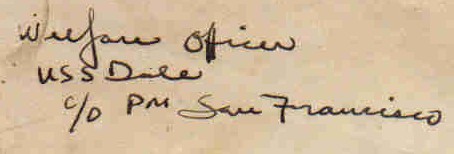 Welfare Officer
USS Dale
c/o PM San Francisco